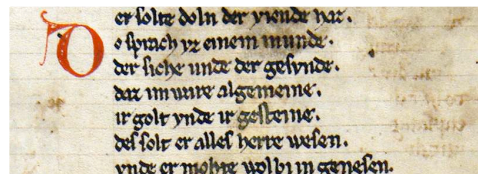 er solte doln der viende har.
Do sprach vz einem munde.
der siche unde der gesvnde.
daz im wære algemeine.
ir golt vnde ir gesteine.
des solt er alles herre wesen.
vnde er mohte wol bi in genesen.